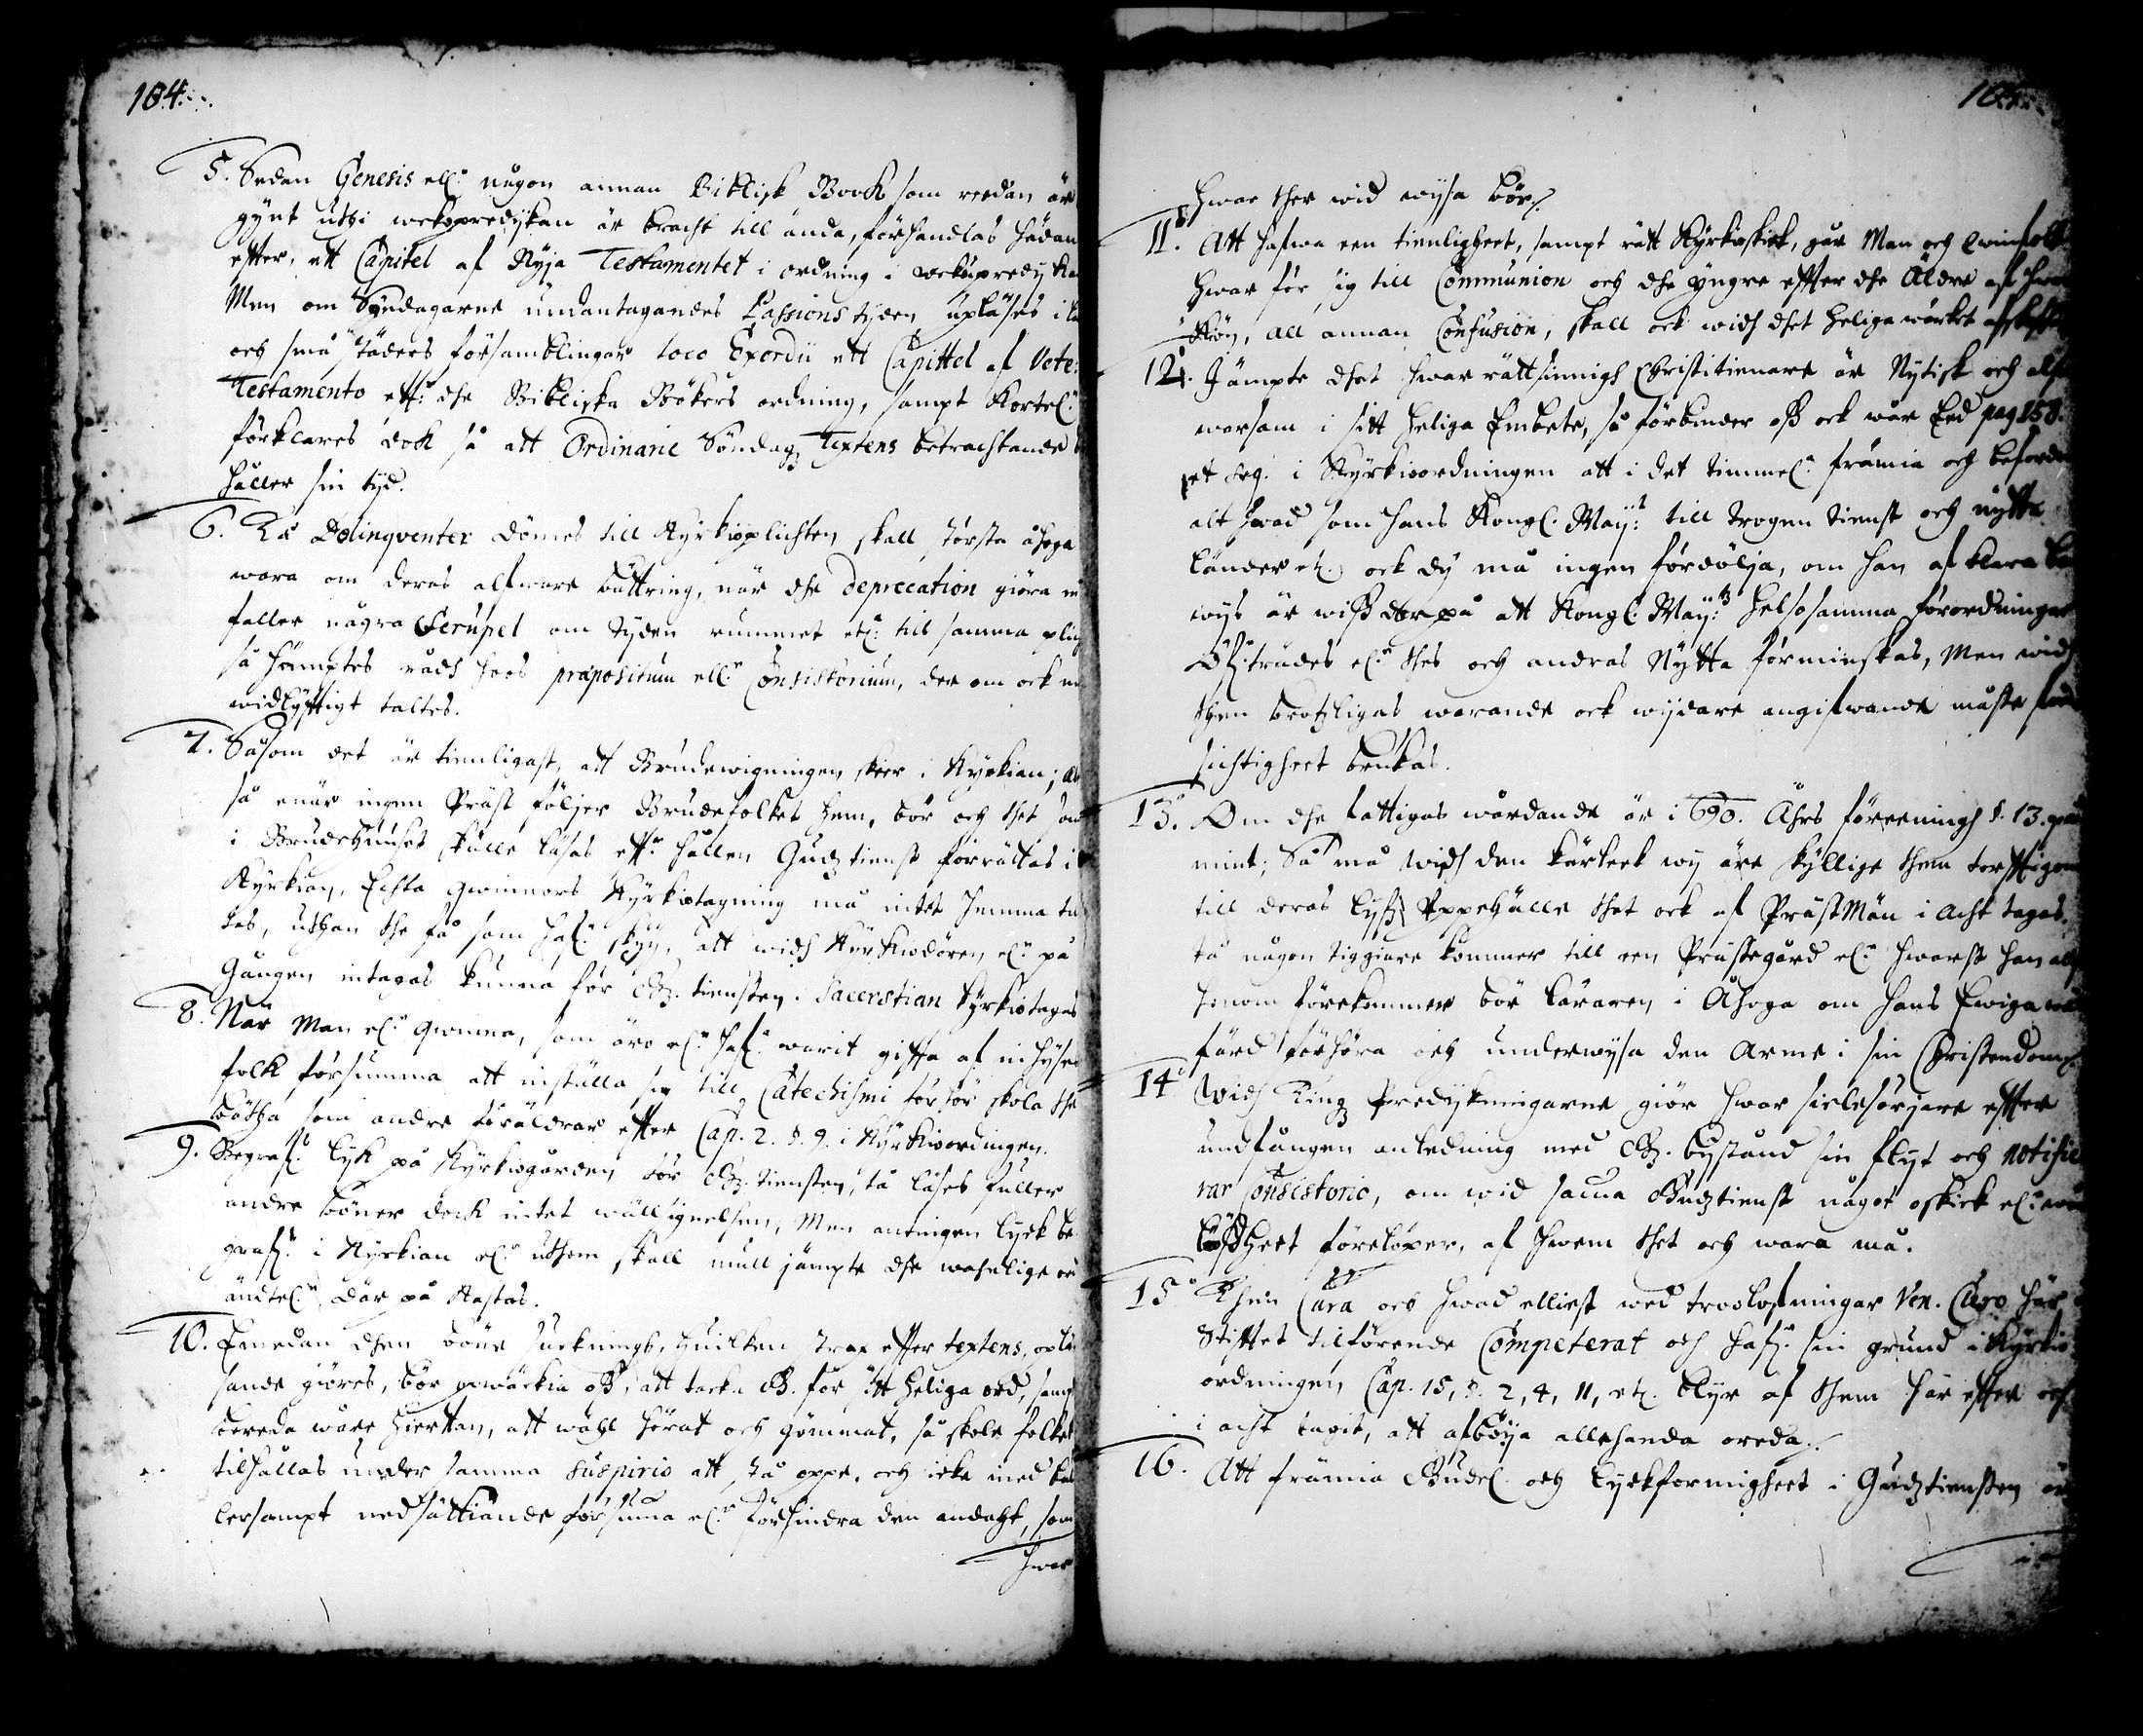 184.
5. Sedan Genesis ell:r någon annan Biblisk Book som redan är
gynt uthi wekopredijkan är bracht till ända, förhandlas hädan
effter, ett Capitel af Nyja Testamentet i ordning i wekupredijkan
Men om Syndagarne undantagandes Passions tijden upläses i
och små städers församblingar loco Exordii ett Capittel af Vete:
Testamento efft:r dhe Bibliska Bökers ordning, sampt kortel:n
förklares dock så att Ordinarie Söndags Textens betrachtande
håller sin tijd.
6. Tå Delinqventer dömes till Kyrkioplichten skall största åhoga
wara om deras alfware bättring, när dhe deprecation giöra
faller några Scrupel om tyden rummet etc: till samma
så hämptes rådh hoos præpositum ell:r Consistorium, der om ock
widlyfftigt taltes.
7. Såsom det är tienligast, att Brudewigningen skier i Kyrkian;
så enär ingen Präst följer Brudefolket hem, bör och thet som
i Brudehuuset skulle läsas efft:r hållen Gudztienst förrättas i
Kyrkian, Echta qwinnors Kyrkiotagning må intet hemma
tas, uthan the få som haf:a skyn, att widh Kyrkiodören el:r på
Gången intagas kunna för Gudz tiensten. Sacerstian kyrkiotagas
8. När Man el:r qwinna, som äro el:r haf:a warit giffta af inhyses
folk försumma att inställa sig till Catechismi förhör skola the
bötha som andre föräldrar effter Cap. 2. §. 9. i Kyrkioordningen.
9. Begraf:s lijk på Kyrkiogården för Gudztiensten, tå läses fuller
andre böner dock intet wällsignelsen, Men antingen lijck be-
graf:s i Kyrkian el:r uthom skall mull jämpte dhe wahnlige ord
ändtel:n där på kastas.
10. Emedan dhen böne suckningh, huilken strax effter textens, oplä-
sande giöres, bör opwäckia oß, att tacka G. för itt heliga ord, sampt
bereda wåre hiertan, att wähl hörat och gömmat, så skole folket
tilhållas under samma suspirio att stå oppe, och icke med
lersampt nedsättiande försuma el:r förhindra den andacht, som
hwar

185.
hwar ther wid wijsa bör.
11. Att hafwa een tienligheet, sampt rätt Kyrkioskick, går Man och qwinfolk
hwar för sig till Communion och dhe yngre effter dhe Äldre af
Kön, all annan Confusion, skall ock widh dhet heliga wärket
12. Jämpte dhet hwar rättsinnigh Christitienare är Nytisk och
warsam i sitt heliga Embete, så förbinder oß ock wår Eed pag 158.
et seq. i Kyrkioordningen att i det timmel:n främia och befordra
alt hwad som hans Kongl. May:t till trogen tienst och nytta
länder etc. ock dy må ingen fördölja, om han af klara
wijs är wiß derpå att Kongl May:tz helsosamma förordningar
öfwerträdes el:r thes och andras Nytta förminskas, Men widh
thyen brotzligas warande ock wijdare angifwande måste
sichtigheet brukas.
13. Om dhe fattigas wårdande är i 690. Åhrs föreeningh §. 13.
mint; Så må widh den kärleek wij äre skyllige them torfftigom
till deras Lijfz Uppehälle thet ock af PrästMän i acht tagas,
tå någon tiggiare kommer till een Prästegård el:r hwarst han
honom förekommer bör läraren i Åhoga om hans Ewiga
färd förhöra och underwysa den Arme i sin Christendom.
14. Widh Ting Predijkningarne giör hwar siälesörjare effter
undfången anledning med Gudz bijstånd sin flijt och notifie
rar Consistorio, om wid sacna Gudztienst något oskick el:r
lößheet förelöper, af hwem thet och wara må.
15. Then Cura och hwad elliest wed troolofningar Ven. Clero här
Stifftet tilförende Competerat och haf:r sin grund i Kyrkio
ordningen Cap. 15, §. 2, 4, 11, etc. blijr af them här effter och
i acht tagit, att afböja allehanda oreda.
16. Att främia Gudel. och lijckformigheet i Gudztiensten